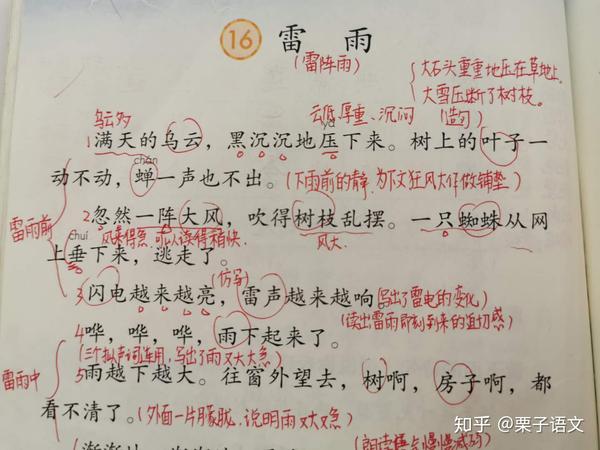 16 雷雨
(雷阵雨)
大石头重重地压在草地上。
大雪压断了树枝。
(造句)
乌云多
云低、厚重、沉闷
yā
1满天的乌云，黑沉沉地压下来。树上的叶子一
chán
动不动，蝉一声也不出。(下雨前的静，为下文狂风大作做铺垫)
雷雨前
2忽然一阵大风，吹得树枝乱摆。一只蜘蛛从网
chuí
风来得急，可以读得稍快。
风大
上垂下来，逃走了。
(仿写)
3闪电越来越亮，雷声越来越响。(写出了雷电的变化)
(读出雷雨即刻到来的迫切感)
4哗，哗，哗，雨下起来了。
(三个拟声词连用，写出了雨又大又急)
雷雨中
5雨越下越大。往窗外望去，树啊，房子啊，都
看不清了。(外面一片朦胧，说明雨又大又急)
知乎 @栗子语文